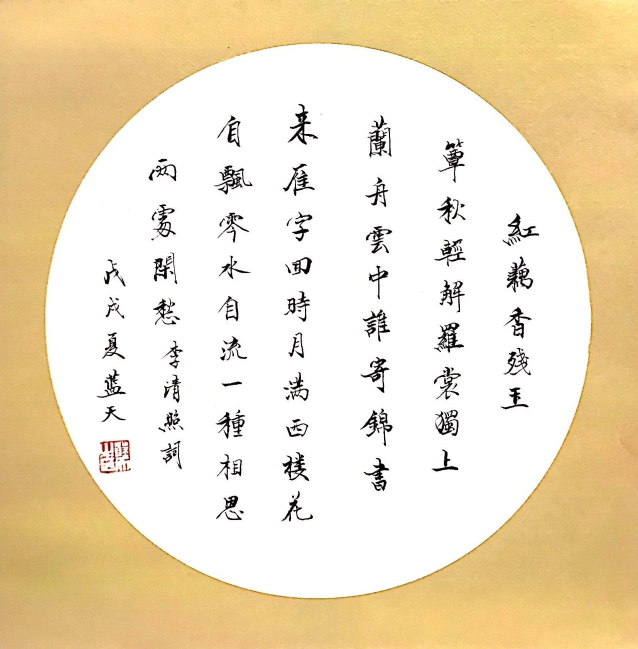 紅藕香殘玉
簟秋輕解羅裳獨上
蘭舟雲中誰寄錦書
来雁字回時月满西楼花
自飄零水自流一種相思
两處閑愁 李清照詞
戊戌夏蓝天